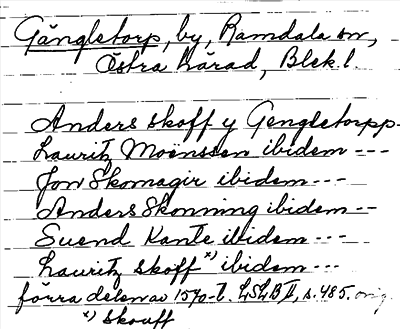 Gängletorp, by, Ramdala sn,
Östra härad, Blek. l.
Anders skoff y Gengletorpp
Lauritz Moënssen ibidem ---
Jon Skomagir ibidem ---
Anders Skonning ibidem --
Suend Kante ibidem ---
Lauritz skoff x) ibidem ---
förra delen av 1570-t. LSLB II, s. 485. orig.
x) skouff